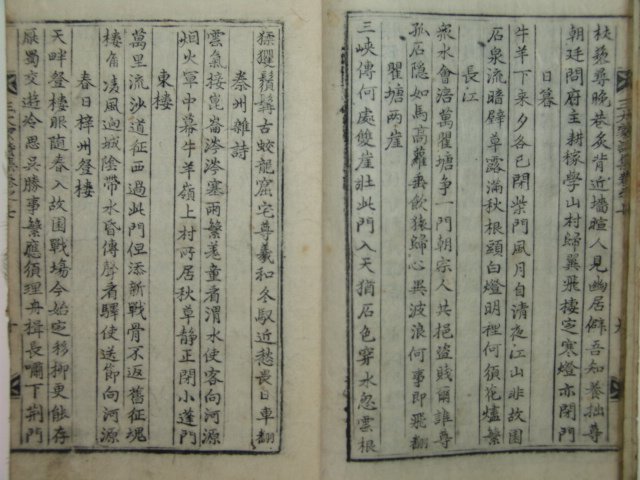 杖藜尋晚巷炙背近墻暄人見幽居僻吾知養拙尊
朝廷問府主耕稼學山村歸翼飛棲定寒燈亦閉門
日暮
牛羊下来夕各已閉柴門風月自清夜江山非故園
石泉流暗壁草露滿秋根頭白燈明裡何須花燼繁
長江
衆水會涪萬瞿塘争一門朝宗人共挹盜賊爾誰尊
孤石隱如馬高蘿垂飲猿歸心異波浪何事即飛翻
瞿塘兩崖
三峽傳何處雙崖壯此門入天猶石色穿水忽雲根
猱玃鬚髥古蛟龍窟宅尊羲和冬馭近愁畏日車翻
秦州雜詩
雲氣接崑崙涔涔塞雨繁羌童看渭水使客向河源
烟火軍中幕牛羊嶺上村所居秋草静正閉小蓬門
東樓
萬里流沙道征西過此門但添新戰骨不返舊征魂
樓角凌風迥城陰帶水昏傳聲看驛使送節向河源
春日梓州登樓
天畔登樓眼隨春入故園戰場今始定移柳更能存
厭蜀交遊冷思吳勝事繁應須理舟楫長嘯下荆門